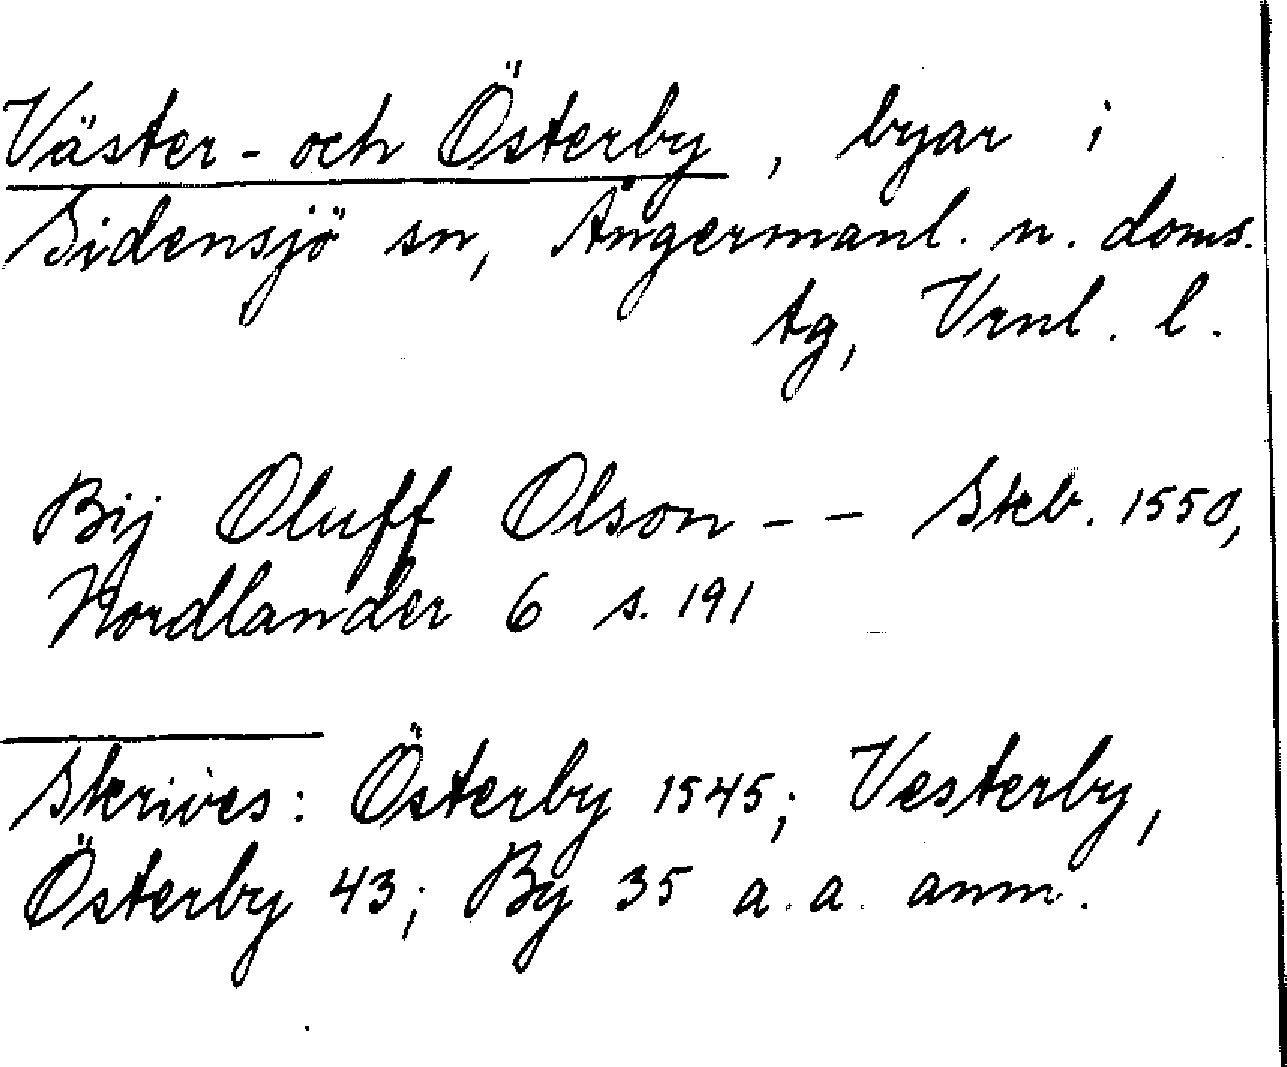 Väster- och Österby, byar i
Sidensjö sn, Ångermanl. n. doms.
tg, Vrnl. l.
Bij Oluff Olson - - Skb. 1550,
Nordlander 6 s. 191
Skrives: Österby 1545; Vesterby,
Österby 43; By 35 a. a. anm.